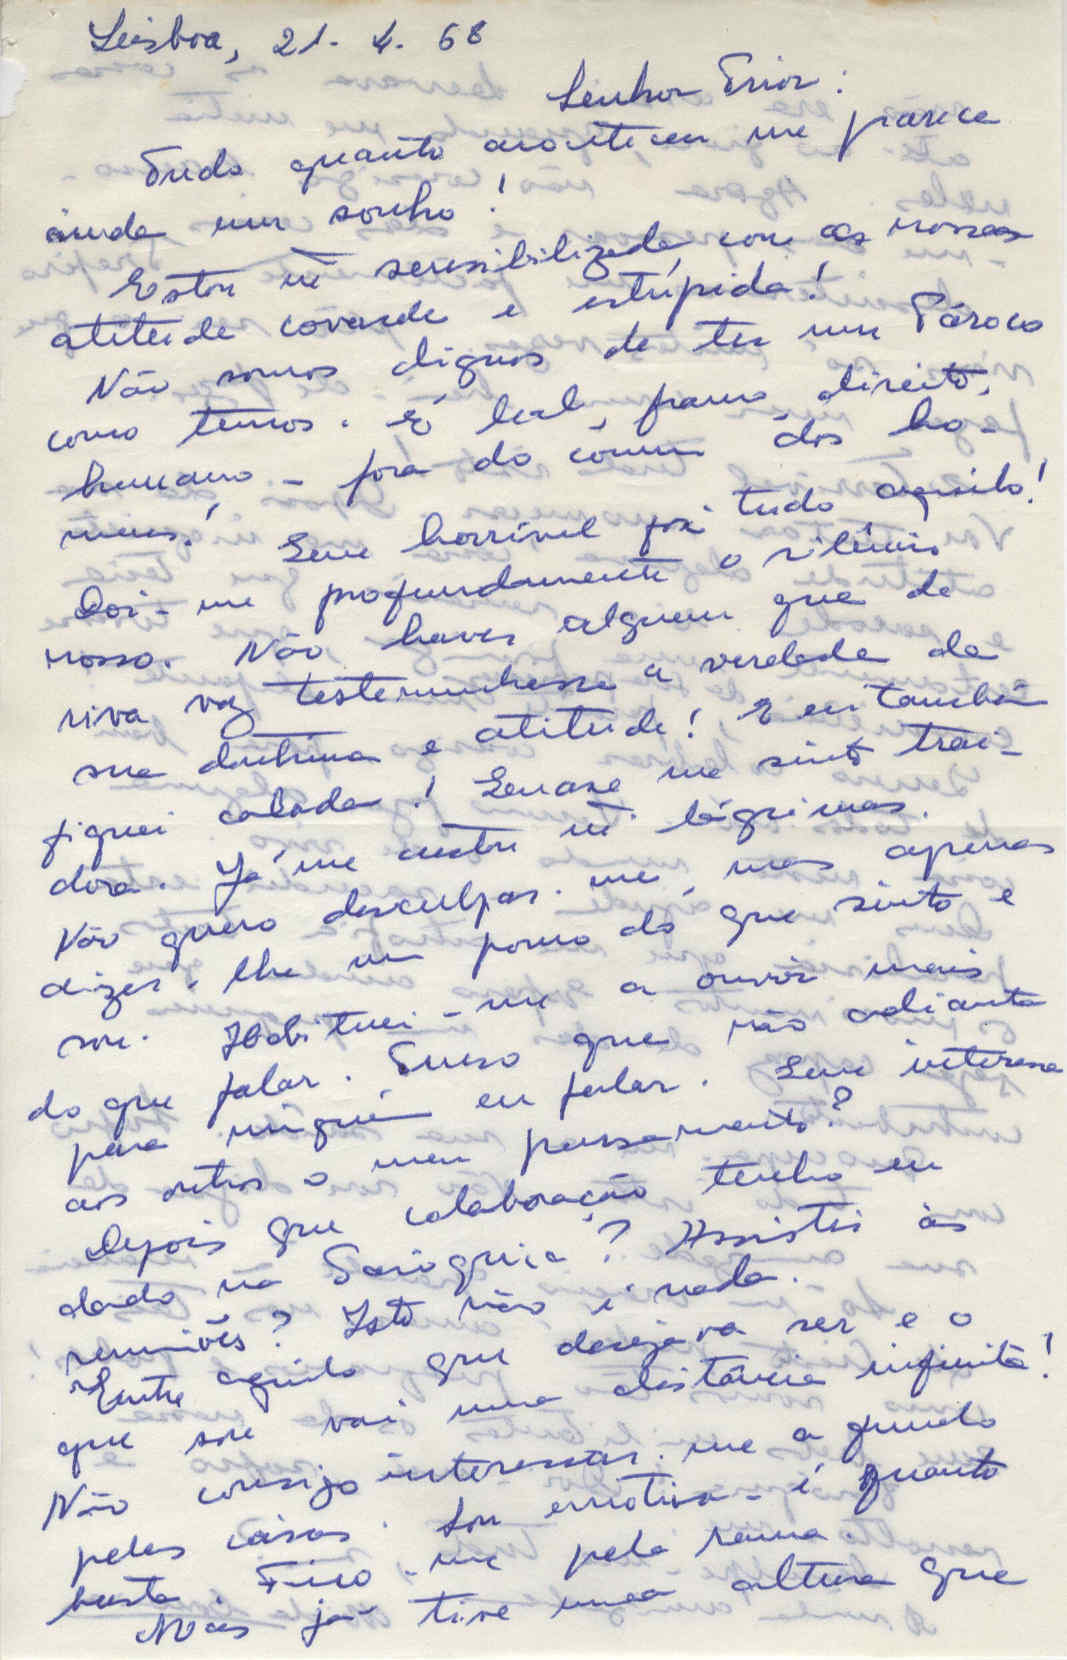 Lisboa, 21. 4. 68
Senhor Prior:
Tudo quanto aconteceu me parece
ainda um sonho!
Estou mt sensibilizada com as nossas
atitude covarde e estúpida!
Não somos dignos de ter um Pároco
como temos. É leal, franco, direito,
humano - fora do comum dos ho-
mens! Que horrível foi tudo aquilo!
Doi-me profundamente o silêncio
nosso. Não haver alguem que de
viva voz testemunhasse a verdade da
sua doutrina e atitude! E eu também
fiquei calada! Quase me sinto trai-
dora. Já me custou mt lágrimas.
Não quero desculpar-me, mas apenas
dizer-lhe um pouco do que sinto e
sou. Habituei-me a ouvir mais
do que falar. Penso que não adianta
para ninguém eu falar. Que interessa
aos outros o meu pensamento?
Depois que colaboração tenho eu
dado na Paróquia? Assistir às
reuniões? Isto não é nada.
Entre aquilo que desejava ser e o
que sou vai uma distância infinita!
Não consigo interessar-me a fundo
pelas coisas. Sou emotiva - é quanto
basta. Fico-me pela rama.
Mas já tive uma altura que